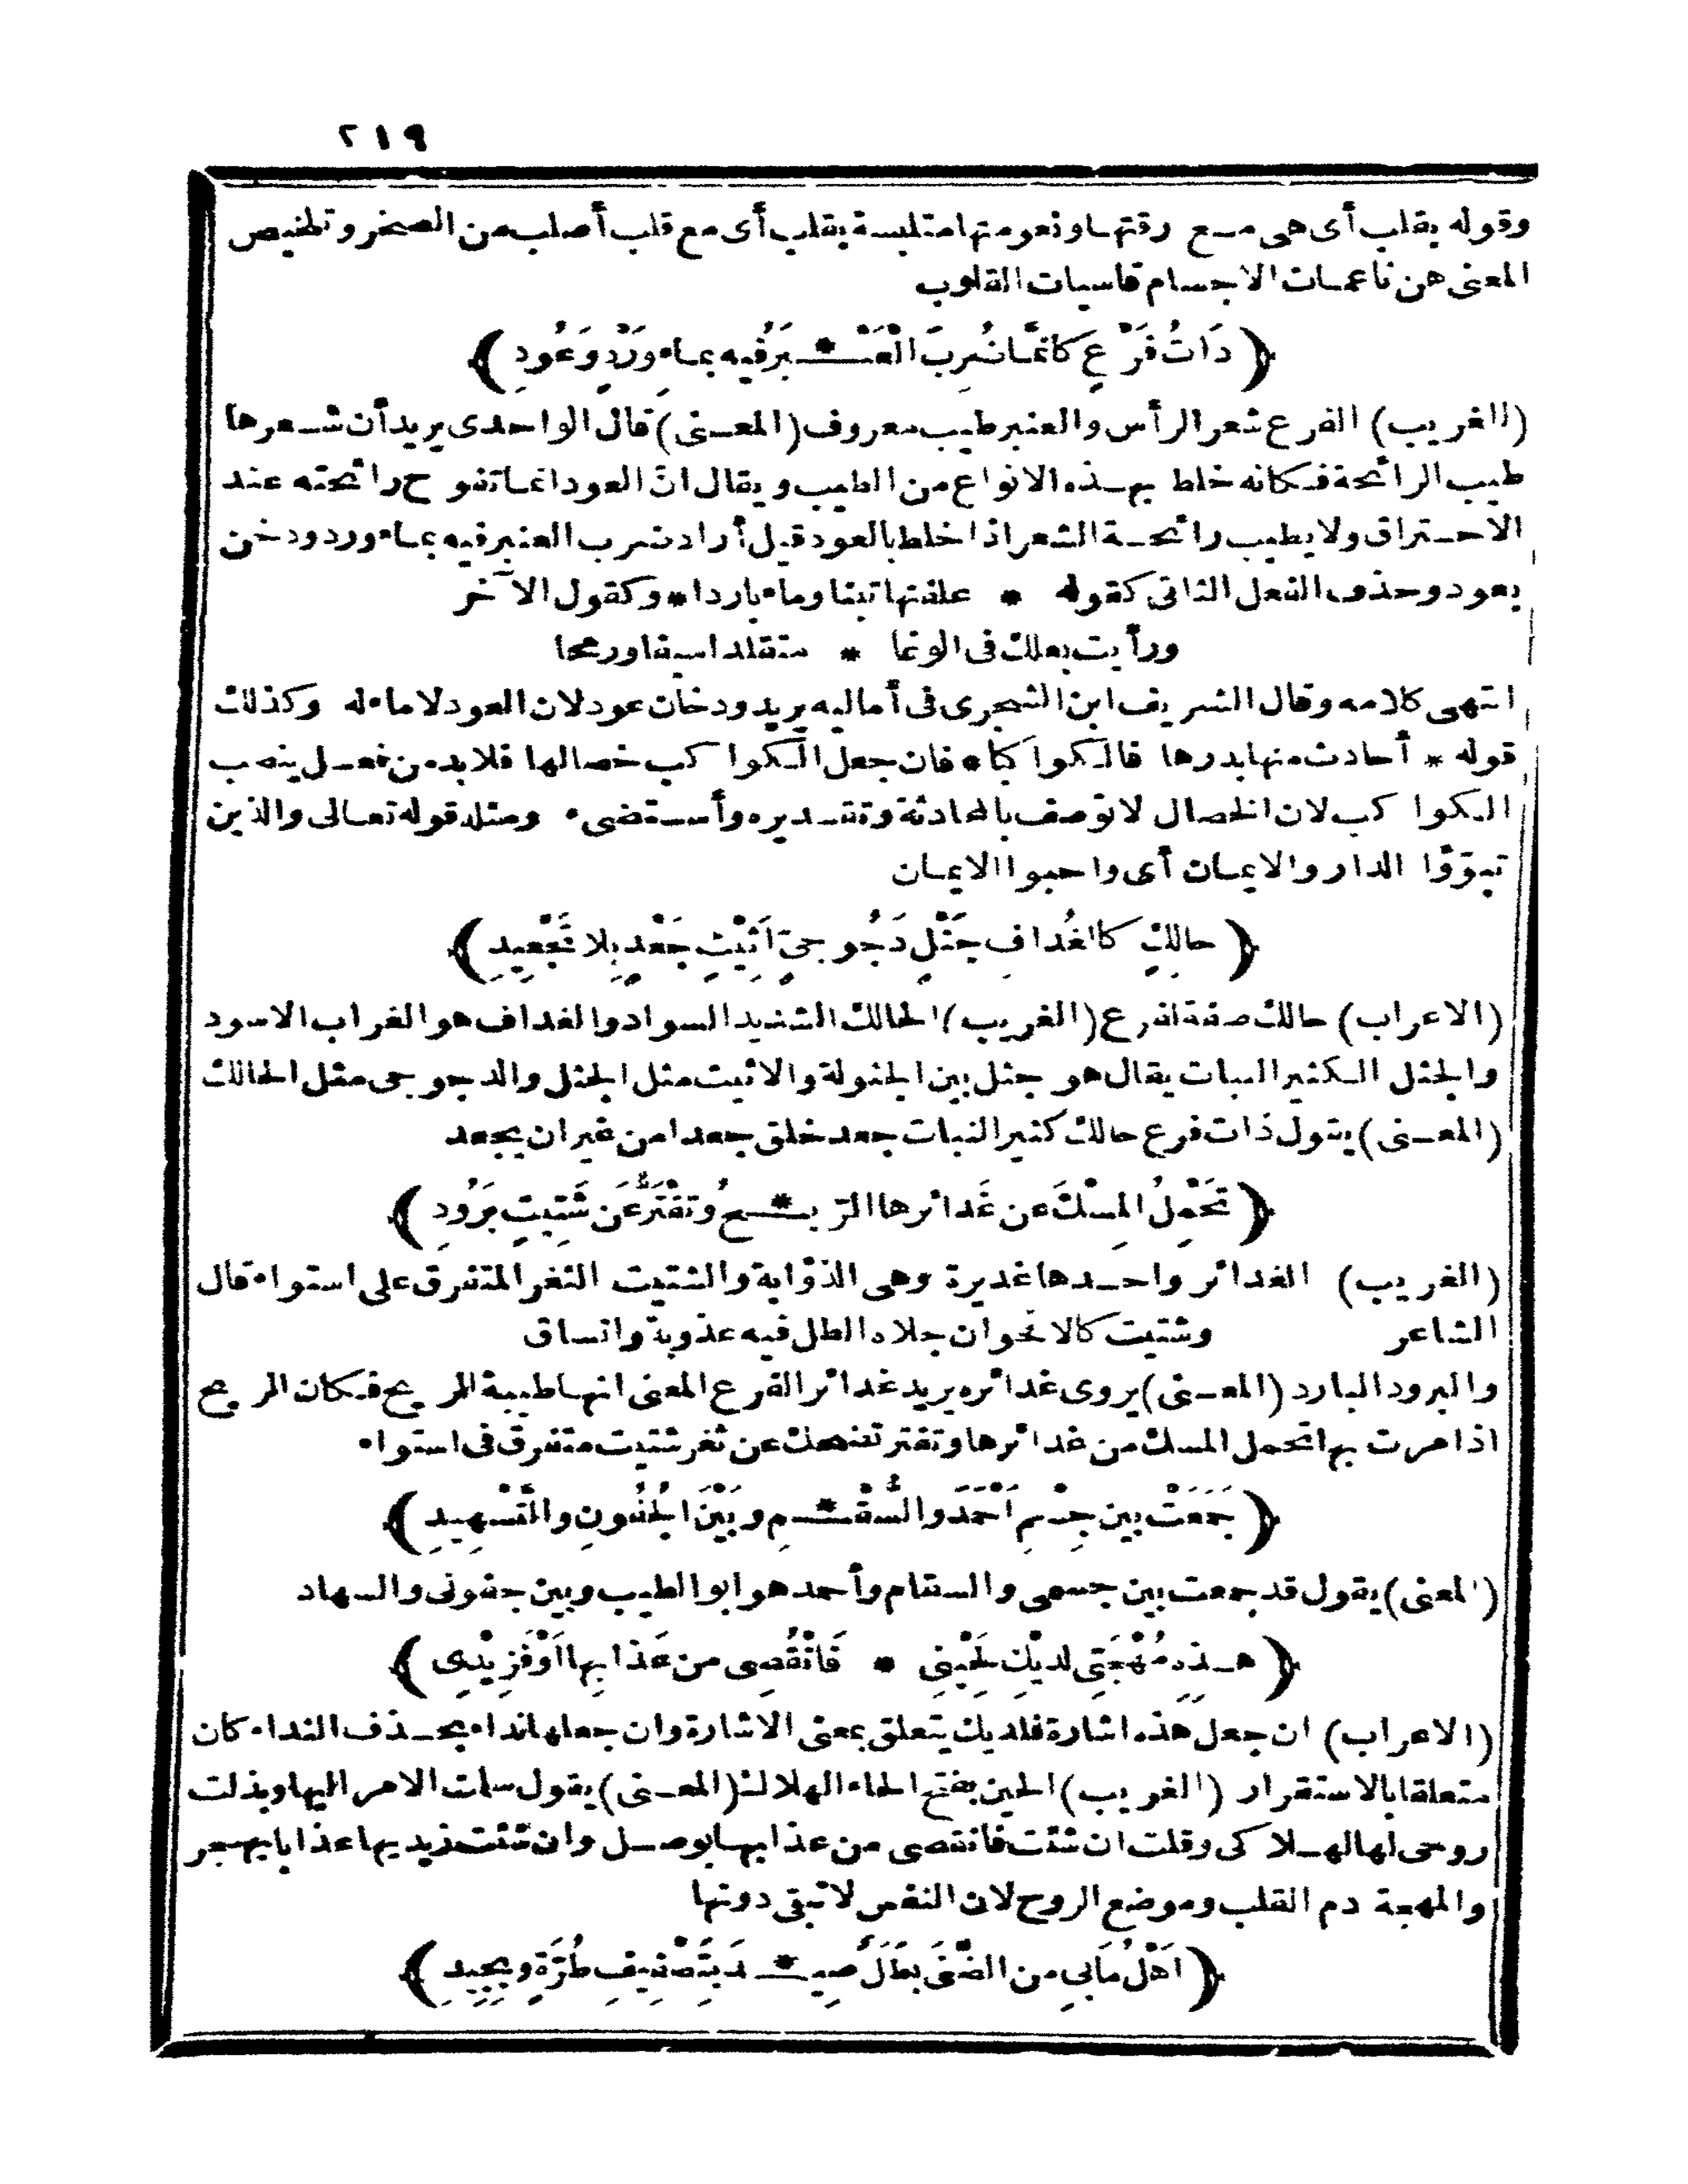 ٢١٩
وقوله بقلب أى هى مع رقتها ونعومتها متلبسة بقلب أى مع قلب أصلب من الصخر وتلخيص
المعنى هن ناعمات الاجسام قاسيات القلوب
﴿ ذَاتُ فَرْعٍ كَأنَّمَا ضُرِبَ الْعَنْـ * ـبَرُ فِيهِ بِمَاءِ وَرْدٍ وَعُودِ ﴾
(الغريب) الفرع شعر الرأس والعنبر طيب معروف (المعنى) قال الواحدى يريد أن شعرها
طيب الرائحة فكانه خلط بهذه الانواع من الطيب ويقال انّ العود انما تفوح رائحته عند
الاحتراق ولا يطيب رائحة الشعر اذا خلط بالعود قيل أراد ضرب العنبر فيه بماء ورد ودخن
بعود وحذف الفعل الثانى كقوله * علفتها تبنا وماء باردا * وكقول الآخر
ورأيت بعلك فى الوغا * متقلدا سيفا ورمحا
انتهى كلامه وقال الشريف ابن الشجرى فى أماليه يريد ودخان عود لان العود لا ماء له وكذلك
قوله * أحادث منها بدرها فالكواكبا * فان جعل الكواكب خصالها فلا بد من فعل ينصب
الكواكب لان الخصال لا توصف بالمحادثة وتقديره وأستضىء ومثله قوله تعالى والذين
تبوّؤا الدار والايمان أى واحبوا الايمان
﴿ حالِكٍ كالغُدافِ جَثْلٍ دَجُوجِىّ أثِيْثٍ جَعْدٍ بِلا تَجْعِيدِ ﴾
(الاعراب) حالك صفة لفرع (الغريب) الحالك الشديد السواد والغداف هو الغراب الاسود
والجثل الكثير النبات يقال هو جثل بين الجثولة والاثيث مثل الجثل والدجوجى مثل الحالك
(المعنى) يقول ذات فرع حالك كثير النبات جعد خلق جعدا من غير ان يجعد
﴿ تَحْمِلُ المِسْكَ عن غَدائرها الرّيـ * ـحُ وَتَفْتَرُّ عَن شَتِيتٍ بَرُودِ ﴾
(الغريب) الغدائر واحدها غديرة وهى الذؤابة والشتيت الثغر المتفرق على استواء قال
الشاعر وشتيت كالاقحوان جلاه الطل فيه عذوبة واتساق
والبرود البارد (المعنى) يروى غدائره يريد غدائر الفرع المعنى انها طيبة الريح فكان الريح
اذا مرت بها تحمل المسك من غدائرها وتفتر تضحك عن ثغر شتيت متفرق فى استواء
﴿ جَمَعَتْ بين جِسْمِ أحْمَدَ والسُّقْـ * ـمِ وبَيْنَ الجُفُونِ والتَّسْهِيدِ ﴾
(المعنى) يقول قد جمعت بين جسمى والسقام وأحمد هو ابو الطيب وبين جفونى والسهاد
﴿ هـذِهِ مُهْجَتِى لديْكِ لِحَيْنِى * فَانْقُصِى من عَذابِها أوْ فَزِيْدِى ﴾
(الاعراب) ان جعل هذه اشارة فلديك يتعلق بمعنى الاشارة وان جعلها نداء بحذف النداء كان
متعلقا بالاستقرار (الغريب) الحين بفتح الحاء الهلاك (المعنى) يقول سلمت الامر اليها وبذلت
روحى لها لهلاكى وقلت ان شئت فانقصى من عذابها بوصل وان شئت زيديها عذابا بهجر
والمهجة دم القلب وموضع الروح لان النفس لا تبقى دونها
﴿ أهْلُ مَابِى من الضَّنَى بَطَلٌ صِيـ * ـدَ بِتَصْفِيفِ طُرَّةٍ وبِجِيدِ ﴾